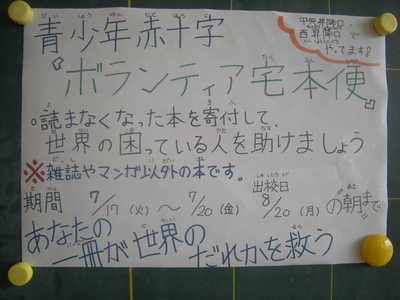 青少年赤十字
中昇降口・
西昇降口で
やってます!
『ボランティア宅本便』
。読まなくなった本を寄付して、
世界の困っている人を助けましょう
※雑誌やマンガ以外の本です。
期間 7/17(火)〜7/20(金) 出校日 8/20(月)の朝まで
あなたの
一冊が世界の
だれかを救う